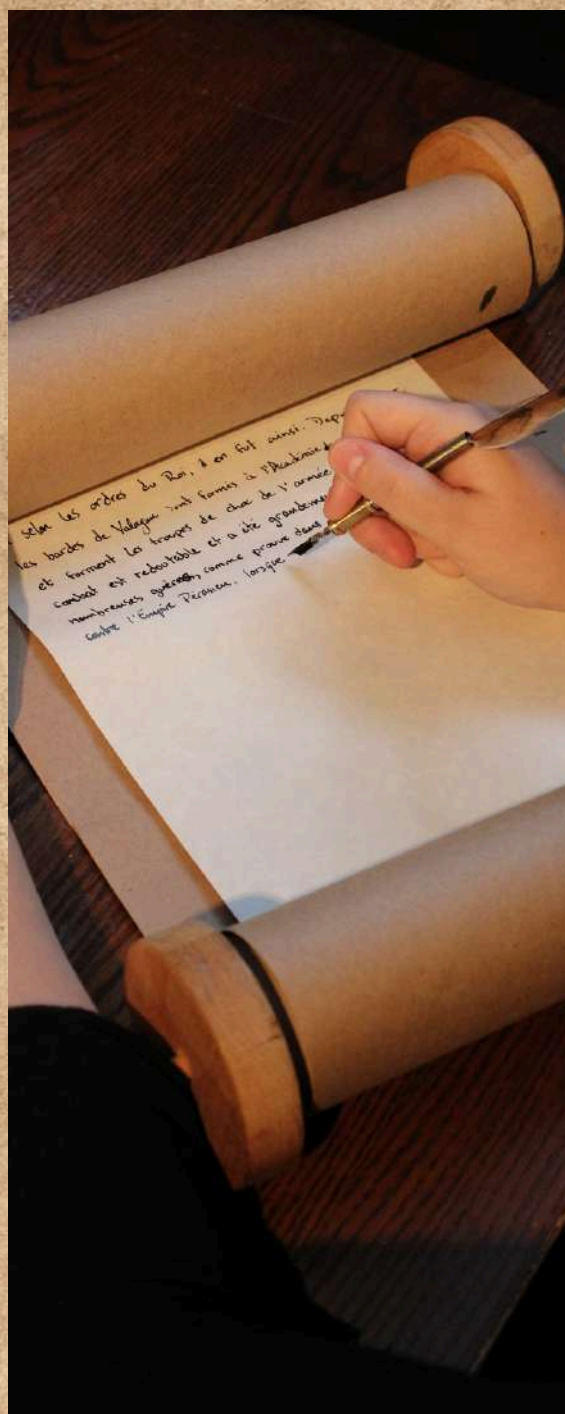 selon les ordres du Roi, il en fut ainsi. Depu
les bardes de Valagne sont formés à l'Académie d
et forment les troupes de choc de l'armée
combat est redoutable et a été grandemen
nombreuses guerres, comme prouvé dans
contre l'Empire lorsque